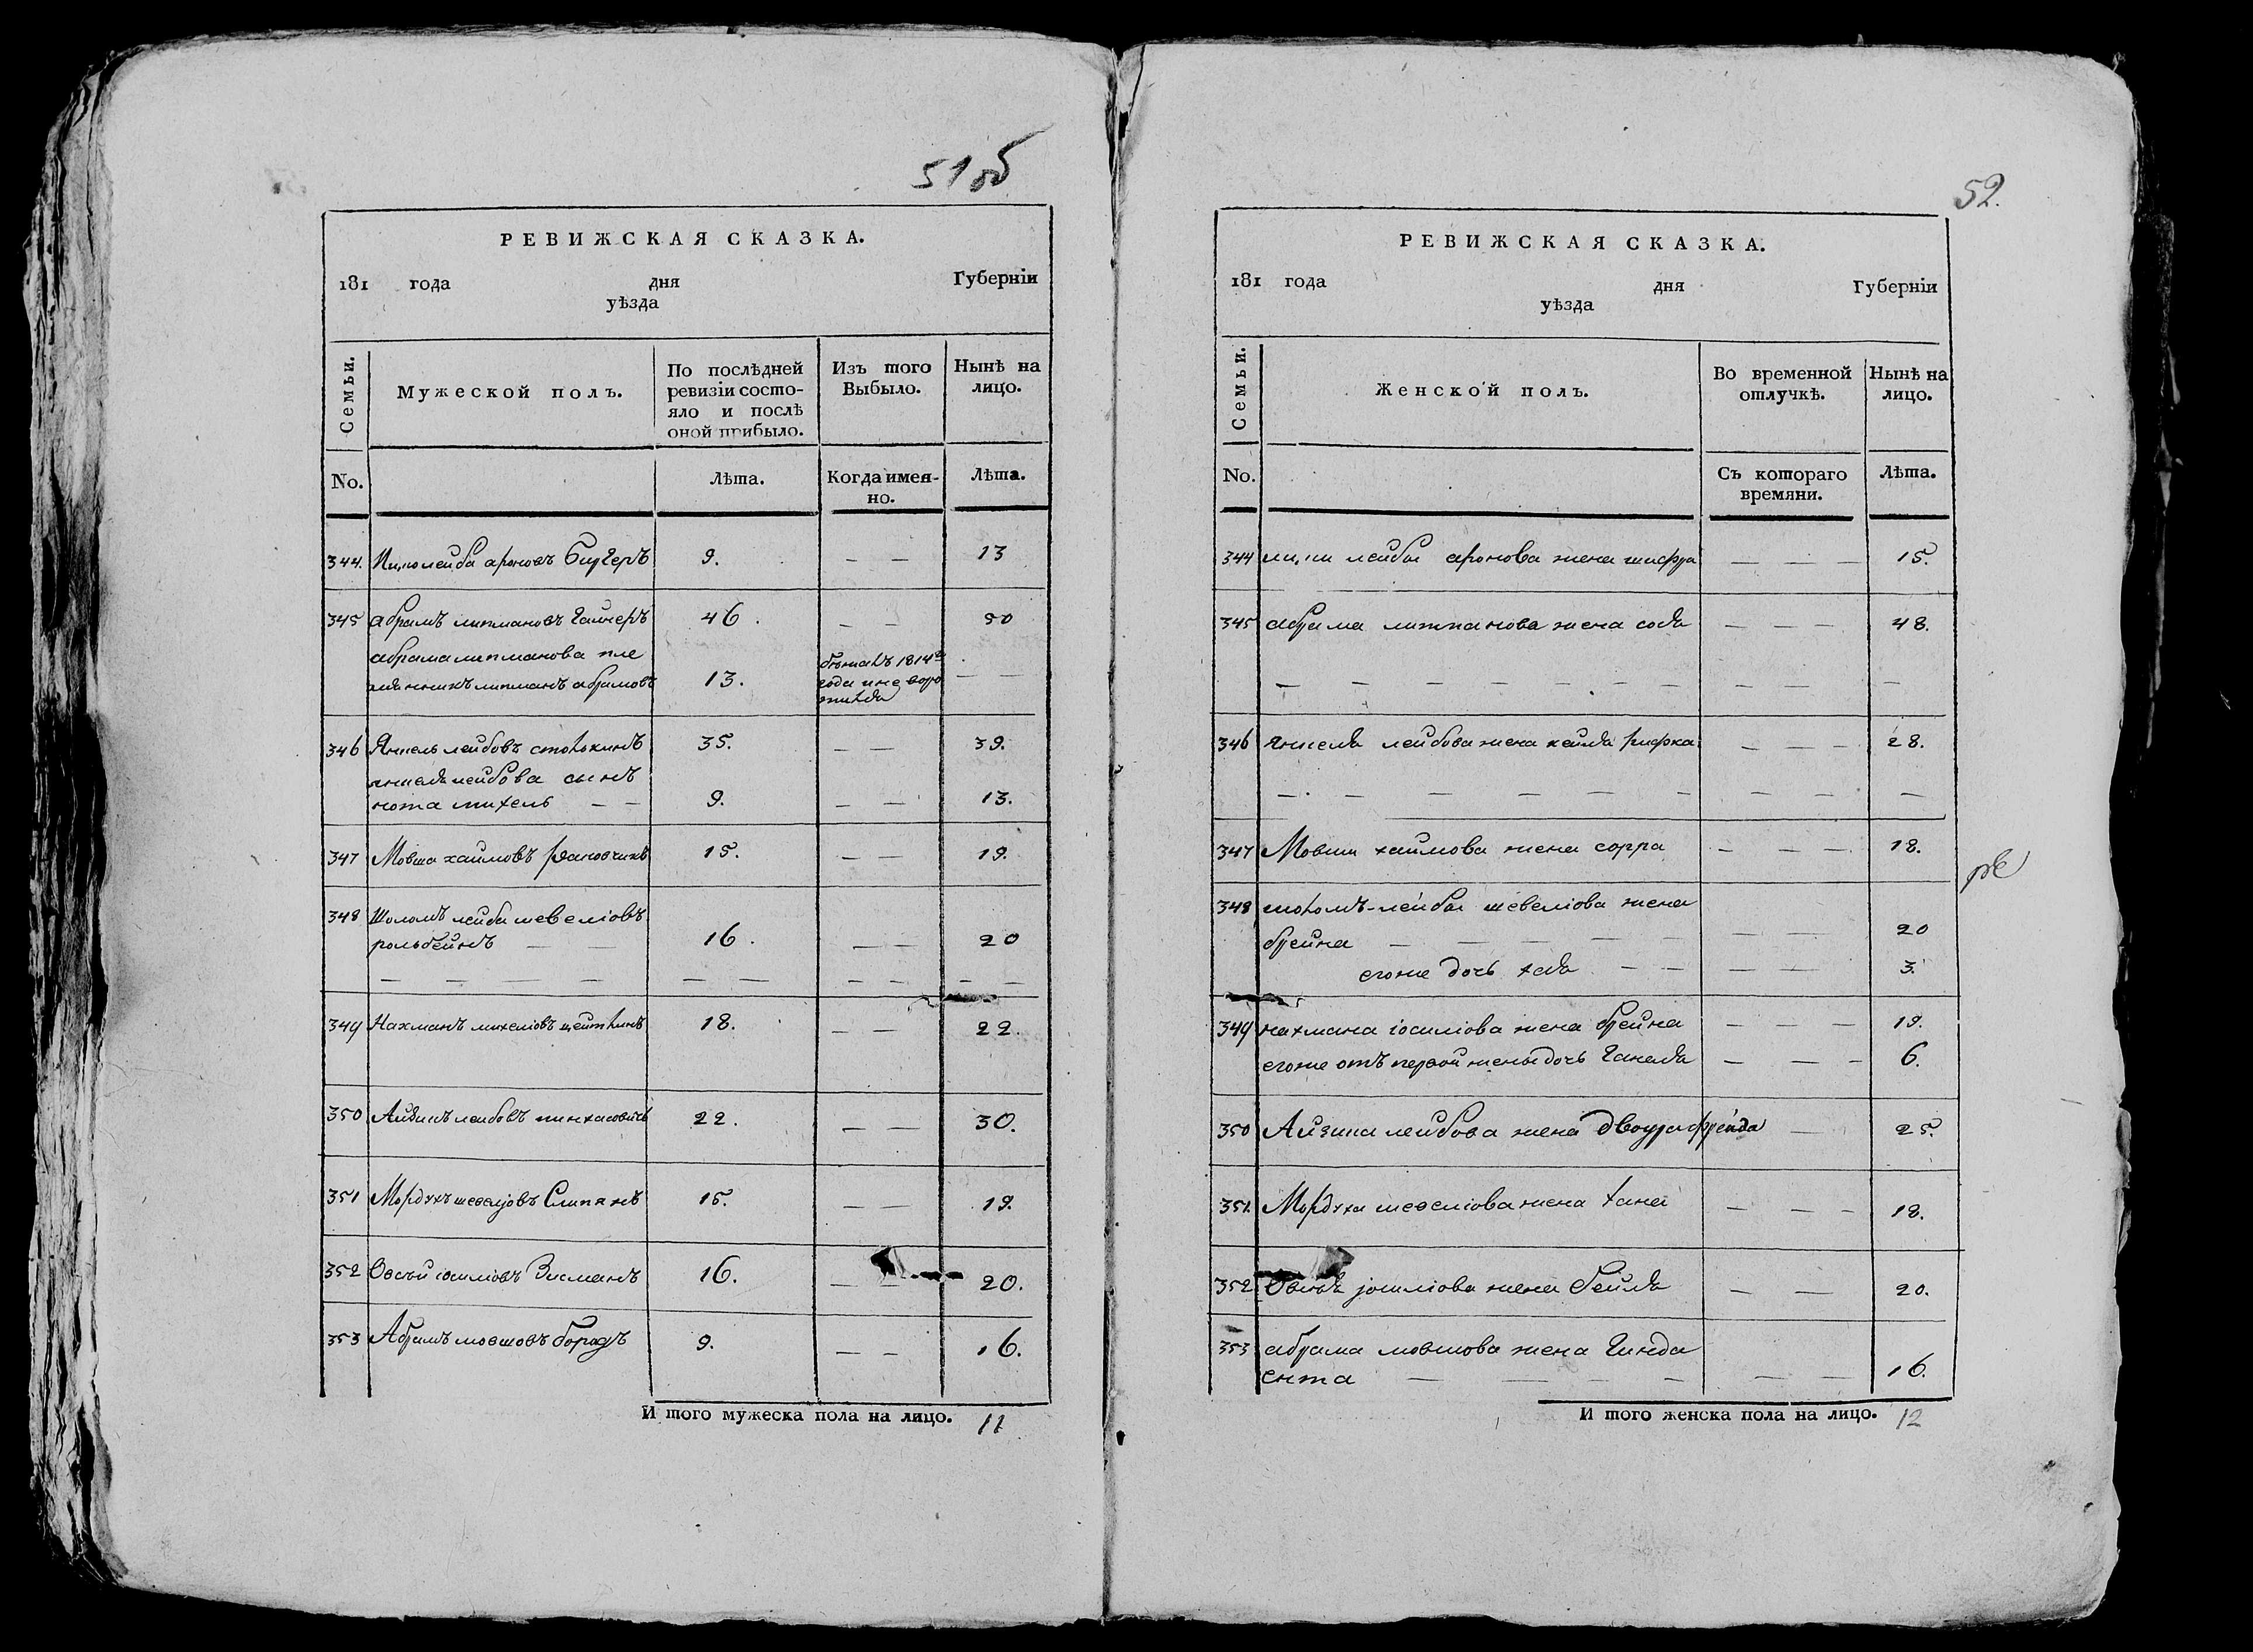 51об
РЕВИЖСКАЯ СКАЗКА.
181 года дня Губерніи
уѣзда
Семьи.
Мужеской полъ.
По послѣдней
ревизіи состо-
яло и послѣ
оной прибыло.
Изъ того
Выбыло.
Нынѣ на
лицо.
No.
Лѣта.
Когда имен-
но.
Лѣта.
344. лейба ароновъ 9. — — 13
345 абрамъ липмановъ 46. — — 50
абрама липманова пле
мянникъ липманъ абрамовъ 13. бѣжалъ 1814го года и не — —
346 Янкель лейбовъ 35. — — 39.
янкеля лейбова сынъ
нота михель — — 9. — — 13.
347 Мовша хаимовъ 15. — — 19.
348 Шоломъ лейба шевеліовъ
16. — — 20
— — — — — — — — — —
349 Нахманъ 18. — — 22.
350 Айзикъ лейбовъ пинхасовичъ 22. — — 30.
351 Мордухъ Слипянъ 15. — — 19.
352 Овсѣй Зисманъ 16. — 20.
353 Абрамъ мовшовъ 9. — — 16.
И того мужеска пола на лицо. 11
52.
РЕВИЖСКАЯ СКАЗКА.
181 года дня Губерніи
уѣзда
Семьи.
Женской полъ.
Во временной
отлучкѣ.
Нынѣ на
лицо.
No.
Съ котораго
времяни.
Лѣта.
344 лейбы аронова жена шифра — — — 15.
345 абрама липманова жена сося — — — 48.
— — — — — — — — — —
346 янкеля лейбова жена рифка — — — 28.
— — — — — — — — — —
347 Мовши хаимова жена сорра — — — 18.
348 шоломъ-лейбы шевеліова жена
брейна — — — — — — — 20
егоже дочь хая — — — — 3.
349 нахмана жена брейна — — — 19.
егоже отъ первой жены дочь — — — 6.
350 Айзика лейбова жена фрейда — 25.
351. Мордуха шевеліова жена хана — — — 18.
352 жена бейля — — 20.
353 абрама мовшова жена гинда
ента — — — — — — 16.
И того женска пола на лицо. 12